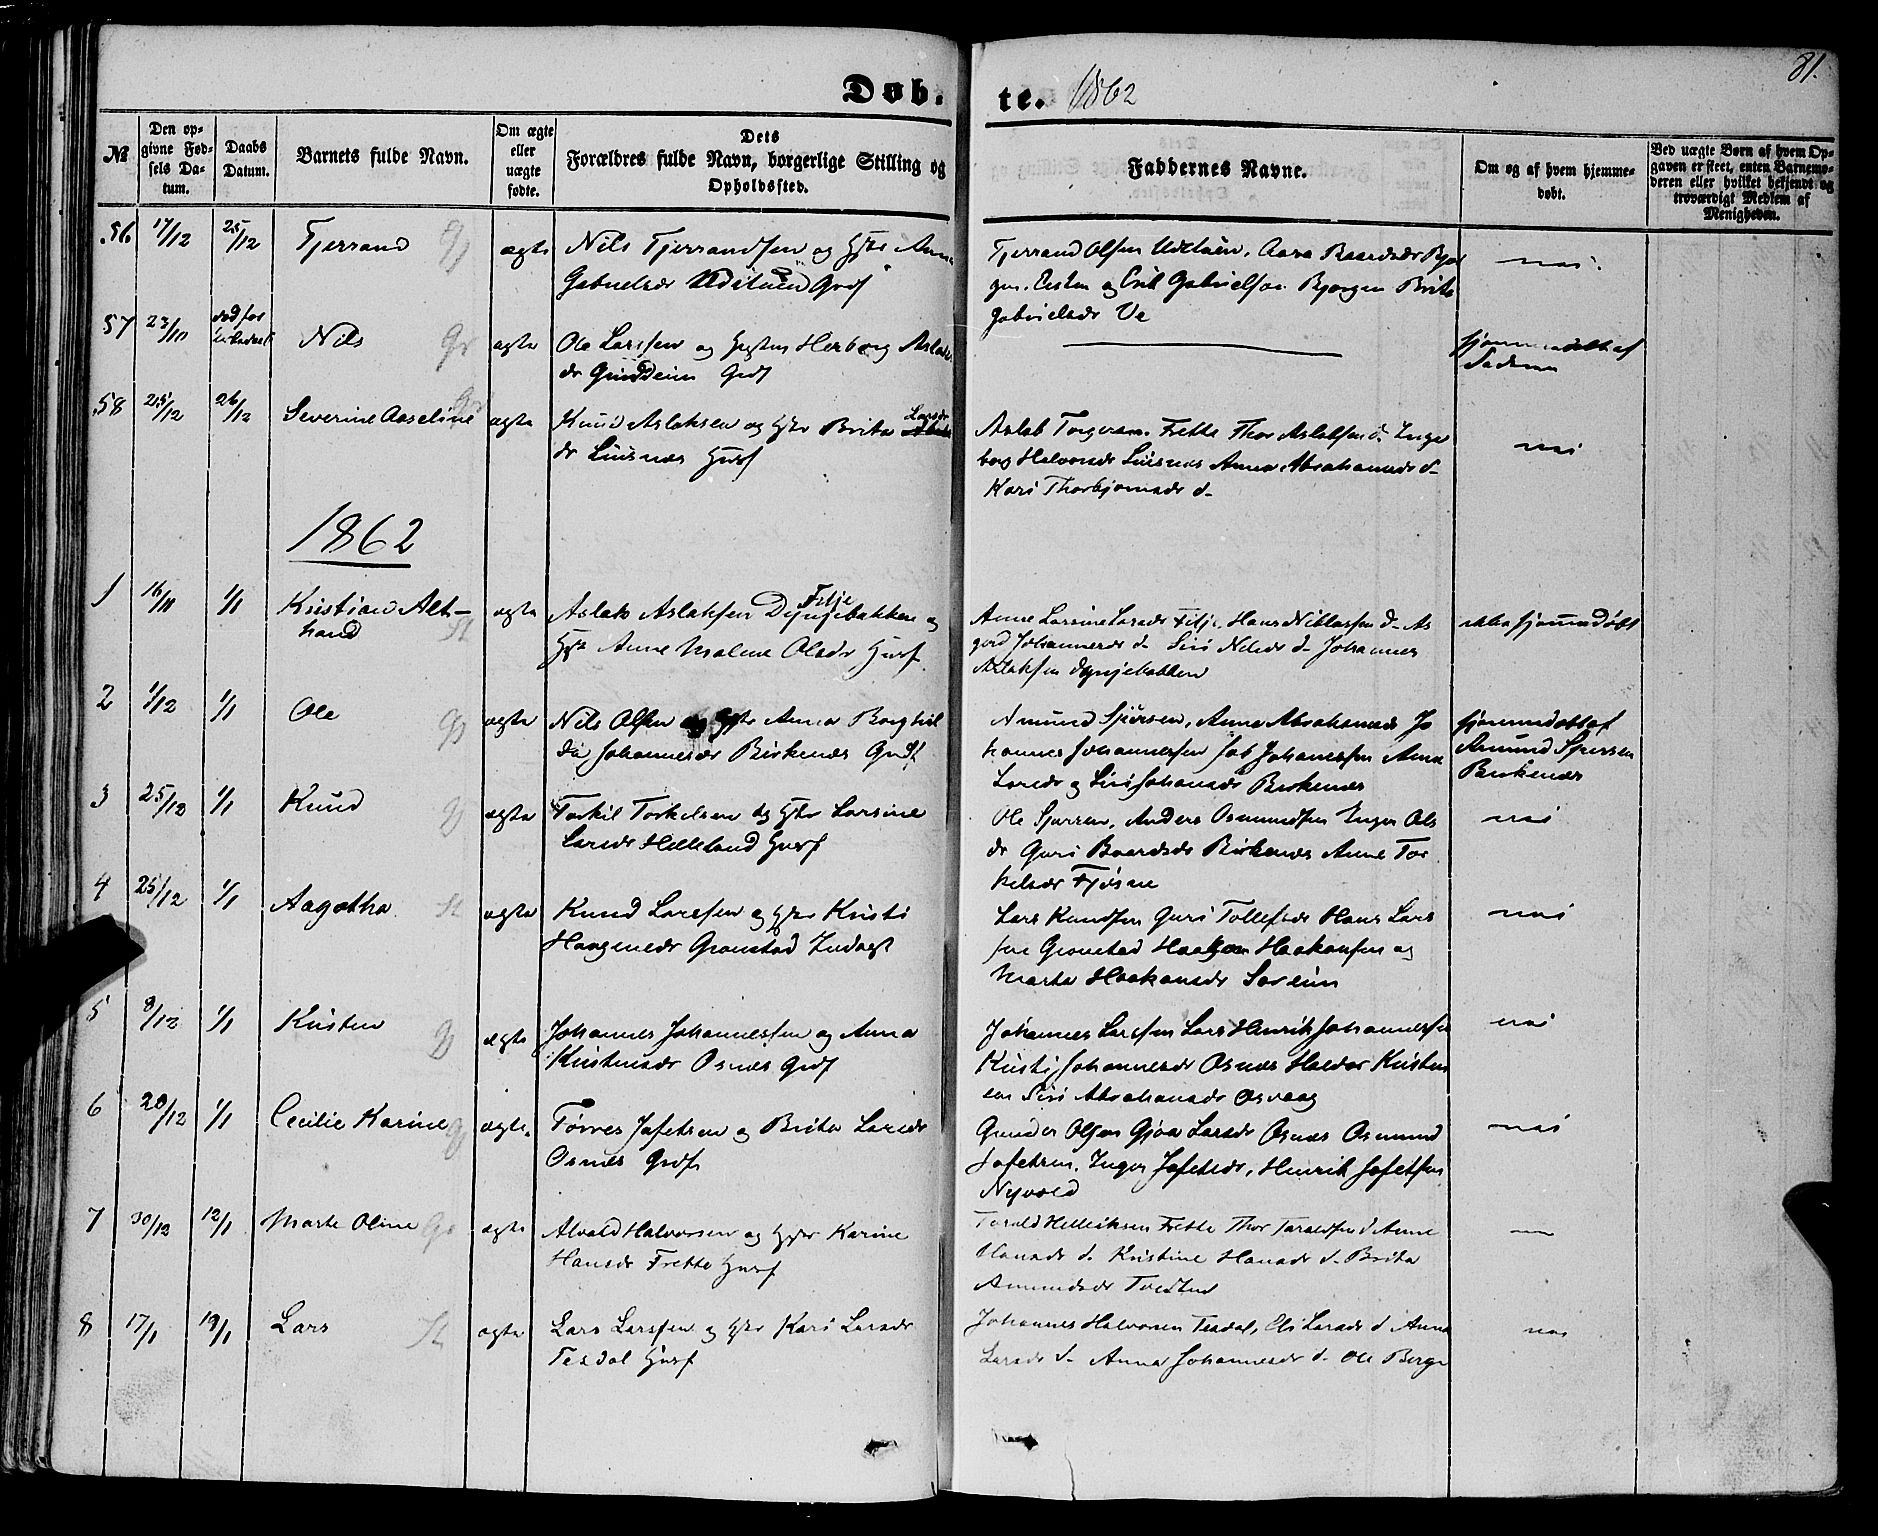 81.
Døb-
te. 1862
№
Den op-
givne Fød-
sels Da-
tum.
Daabs
Datum.
Barnets fulde Navn.
Om ægte
eller
uægte
fødte.
Dets
Forældres fulde Navn, borgerlige Stilling og
Opholdssted.
Faddernes Navne.
Om og af hvem hjemme-
døbt.
Ved uægte Børn af hvem Op-
gaven er skeet, enten Barnemo-
deren eller hvilket bekjendt og
troværdigt Medlem af
Menigheden.
56 17/12 25/12 Tjerrand ægte Nils Tjerrandsen og Hstr Anna
Gabrielsdr Gdf
Tjerrand Olsen Aasa Baardsdr
og Erik Gabrielsen Bjorgen Brita
Gabrielsdr Ve
nei
57 23/10 Nils ægte Ole Larssen og Hustru Herborg
dr Grindeim Gdf
hjemmedøbt af
58 25/12 26/12 Severine Aaseline ægte Knud Aslaksen og Hstr Brita Larsdr
dr Liusnes Husf
Aslak Frette Thor Aslaksen d. Inge
borg Halvorsdr Liusnes Anna Abrahamsdr d-
Kari Thorbjornsdr d-
nei
1862
1 16/11 1/1 Kristian Alt-
hand
ægte Aslak Aslaksen Fitje og
Hstr Anne Malene Olsdr Husf
Anne Larsine Larsdr Fitje, Hans Niklassen d- As
gerd Johannesdr d- Siri Nilsdr d- Johannes
Aslaksen Dynjebakken
hjemmedøbt
2 1/12 1/1 Ole ægte Nils Olsen og Hstr Anna Borghil
da Johannesdr Birkenes Gdf
Amund Sjursen, Anna Abrahamsdr Jo
hannes Johannessen Job Johanessen Anna
Larsdr og Siri Johansdr Birkenes
hjemmedøbt af
Amund Sjursen
Birkenes
3 25/12 1/1 Knud ægte Torkil Torkelsen og Hstr Larsine
Larsdr Helleland Husf
Ole Sjursen, Anders Osmundsen Inger Ols
dr Guri Baardsdr Birkenes Anne Tor
kelsdr Fjøsne
nei
4 25/12 1/1 Aagotha ægte Knud Larssen og Hstr Kristi
Haagensdr Gronstad Inderst
Lars Knudsen Guri Tollefsdr Hans Lars
sen Gronstad Haakon Haakonsen og
Marta Haakonsdr Soreim
nei
5 8/12 1/1 Kristen ægte Johannes Johannessen og Anna
Kristensdr Osnes Gdf
Johannes Larssen Lars Henrik Johannessen
Kristi Johannesdr Osnes Haldor Kristen
sen Siri Abrahamsdr Osvaag
nei
6 20/12 1/1 Cecilie Karine ægte. Tørres Jafetsen og Brita Larsdr
Osnes Gdf
Gunder Olsen Gjoa Larsdr Osnes Osmund
Jafetsen, Inger Jafetsdr, Henrik Jafetsen
Nyvold
nei
7 30/12 12/1 Marte Oline ægte Alvald Halvorsen og Hstr Karine
Hansdr Frette Husf
Torald Helleiksen Frette Thor Taraldsen d Anne
Hansdr d. Kristine Hansdr d. Brita
Amundsdr
8 17/1 19/1 Lars ægte Lars Larssen og Hstr Kari Larsdr
Tesdal Husf
Johannes Halvorsen Tesdal, Eli Larsdr d Anna
Larsdr d- Anna Johannesdr d. Ole Berge
nei